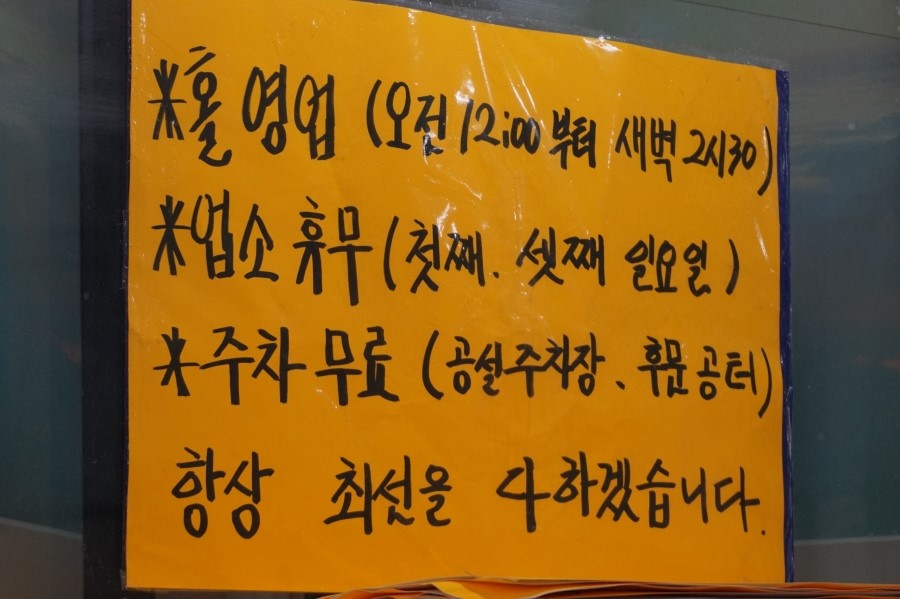 *홀 영업 (오전 12:00 부터 새벽 2시30)
*업소 휴무 (첫째. 셋째 일요일)
*주차 무료 (공설주차장. 후문공터)
항상 최선을 다하겠습니다.